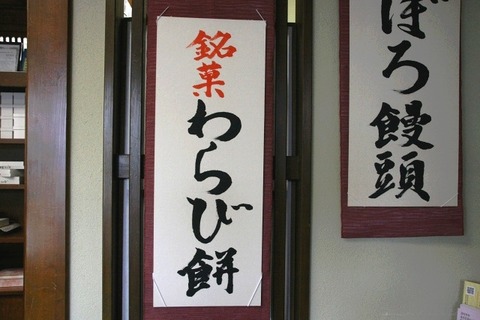 銘菓わらび餅
ぼろ饅頭